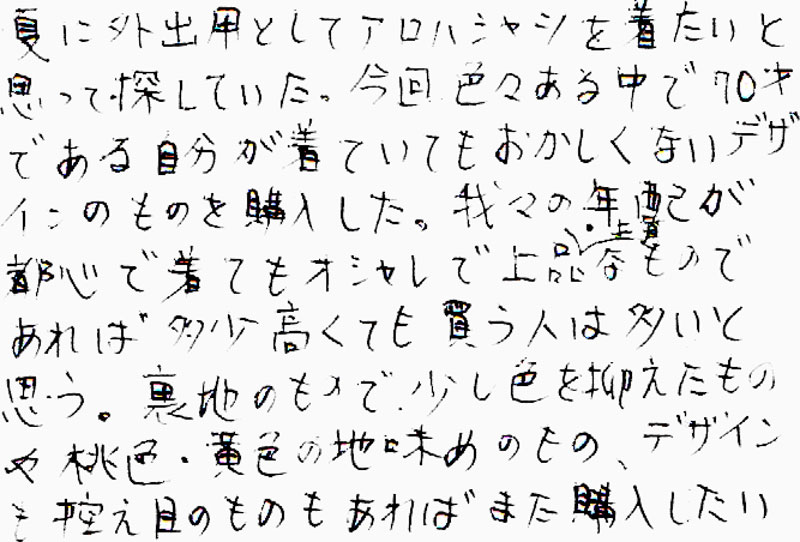 夏に外出用としてアロハシャツを着たいと
思って探していた。今回色々ある中で70才
である自分が着ていてもおかしくないデザ
インのものを購入した。我々の年配が
都心で着てもオシャレで上品なもので
あれば多少高くても買う人は多いと
思う。裏地のもので少し色を抑えたもの
や桃色・黄色の地味めのもの、デザイン
も控え目のものもあればまた購入したい